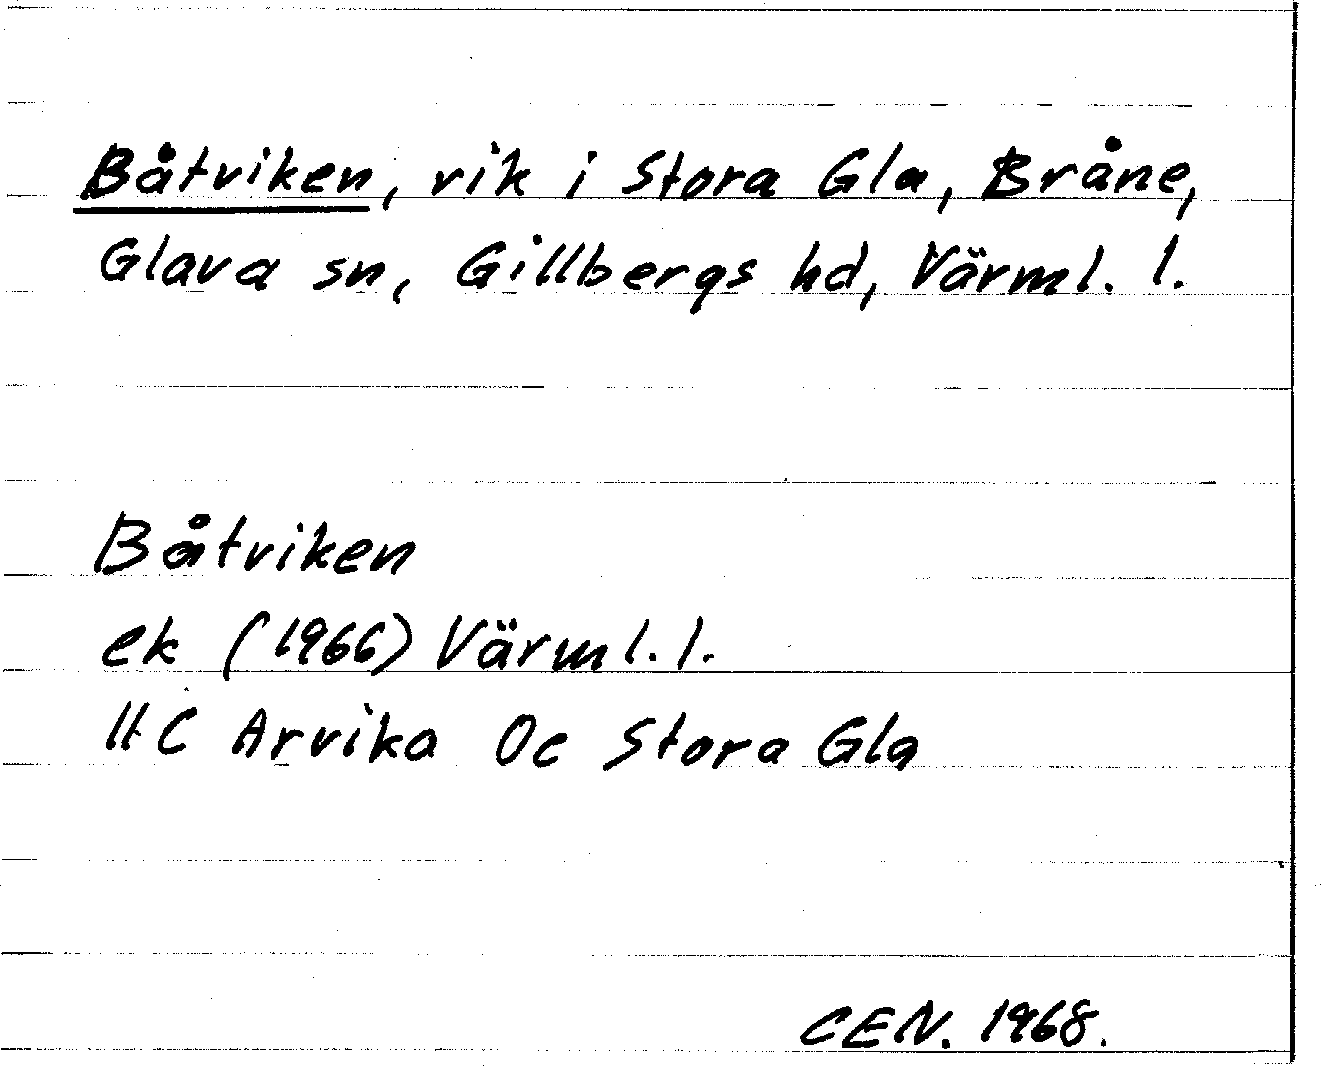 Båtviken, vik i Stora Gla, Bråne,
Glava sn, Gillbergs hd, Värml. l.
Båtviken
ek (1966) Värml. l.
11C Arvika 0c Stora Gla
CEN. 1968.